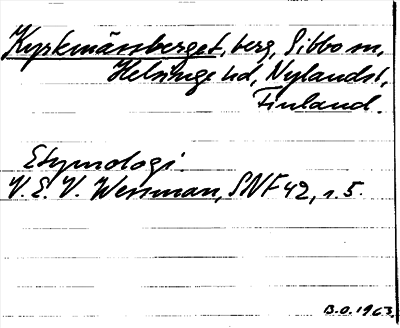 Kyrkmässberget, berg, Sibbo sn,
Helsinge hd, Nylands l,
Finland.
Etymologi.
V. E. V. Wessman, SNF 42, s. 5.
B.O. 1963